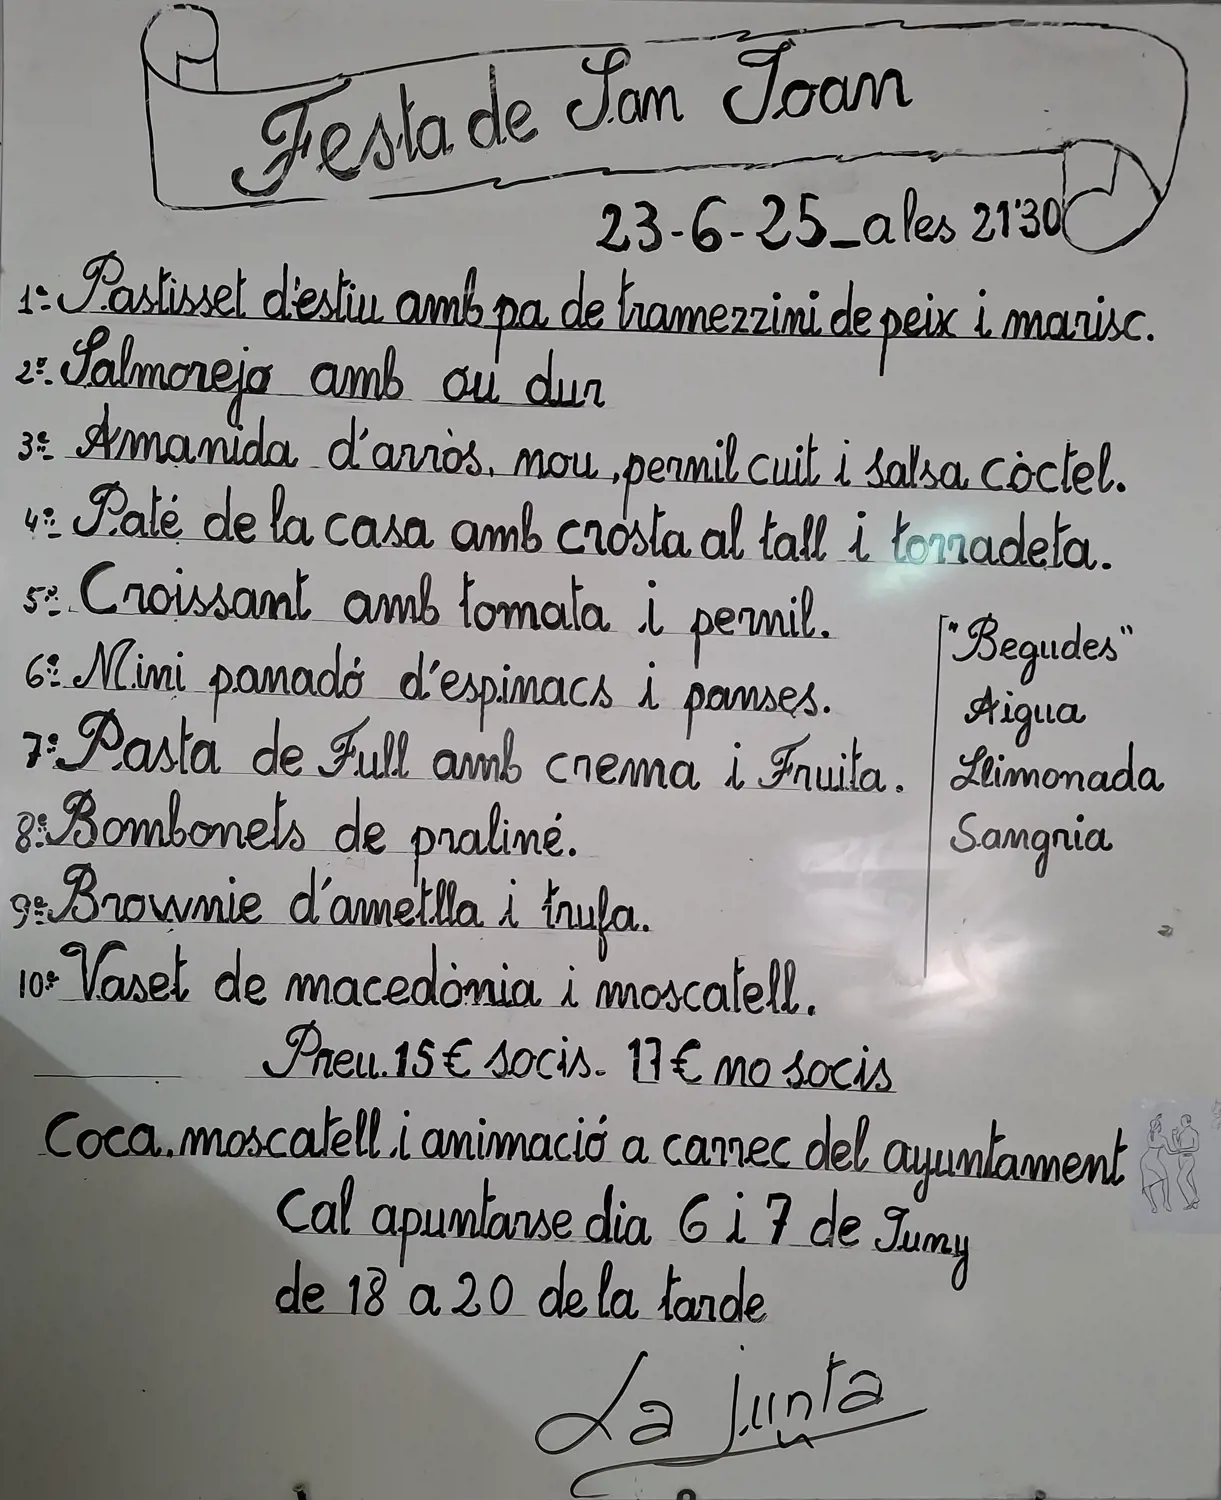 Festa de San Joan
23-6-25_a les 21'30
1º: Pastisset d'estiu amb pa de tramezzini de peix i marisc.
2º: Salmorejo amb ou dur
3º: Amanida d'arròs, nou, pernil cuit i salsa còctel.
4º: Paté de la casa amb crosta al tall i torradeta.
5º: Croissant amb tomata i pernil.
6º: Mini panadó d'espinacs i panses.
7º: Pasta de Full amb crema i Fruita.
8º: Bombonets de praliné.
9º: Brownie d'ametlla i trufa.
10º: Vaset de macedònia i moscatell.
"Begudes"
Aigua
Llimonada
Sangria
Preu. 15€ socis. 17€ no socis
Coca, moscatell i animació a carrec del ayuntament
Cal apuntarse dia 6 i 7 de Juny
de 18 a 20 de la tarde
La junta